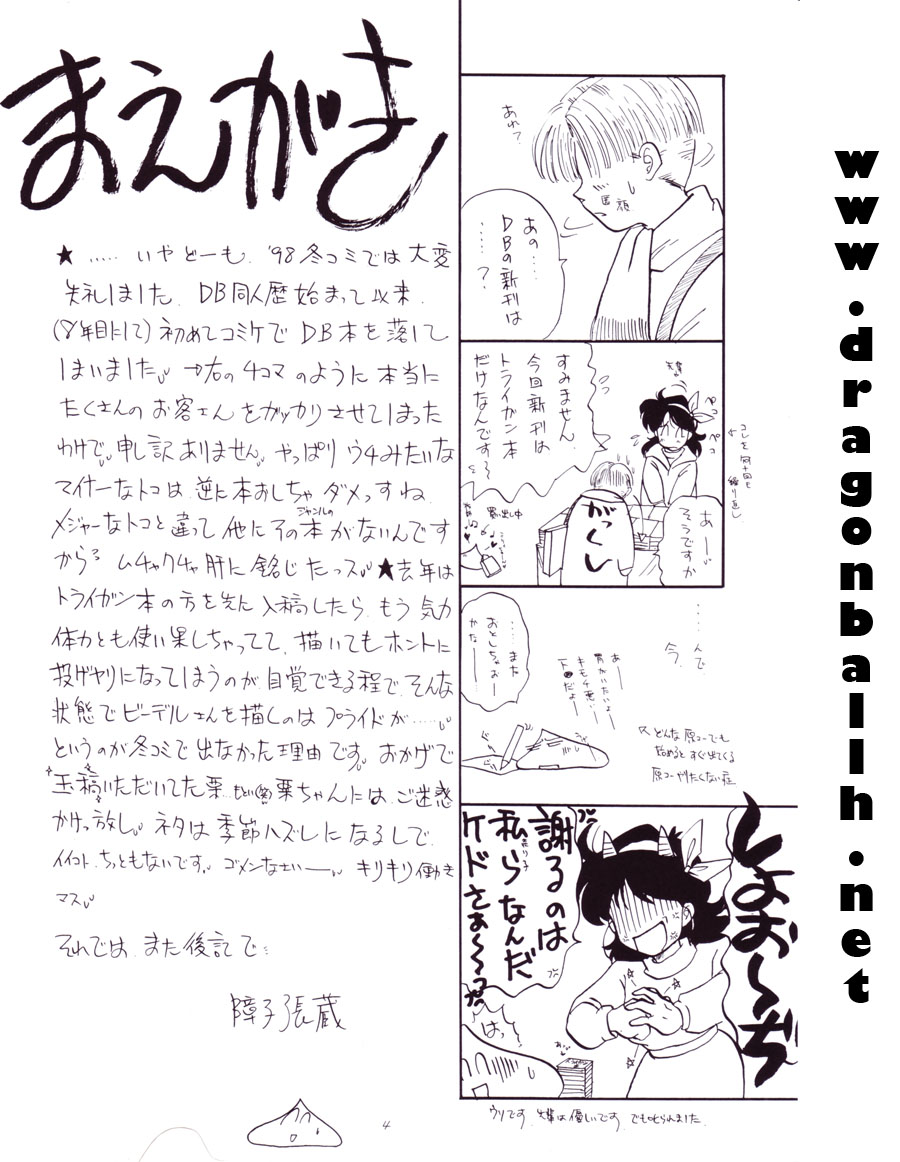 まえがき
★ ‥‥‥ いやどーも. '98冬コミでは 大変
失礼しました. DB同人歴始まって以来.
(8年目にして) 初めてコミケで DB本を 落して
しまいました。 →右の 4コマ のように 本当に
たくさんの お客さん をガッカリさせてしまった
わけで。申し訳ありません。やっぱり ウチみたいな
マイナーなトコは、逆に本おしちゃ ダメっすね.
メジャーなトコと違って 他に そのジャンルの本 がないんです
から。 ムチャクチャ肝に 銘じたっス。 ★去年は
トライガン本 の方を先に 入稿したら、もう 気力
体力とも使い果しちゃってて、描いてもホントに
投げヤリになってしまうのが、自覚できる程で、そんな
状態で ビーデルさんを描くのは プライドが‥‥‥。
というのが冬コミで 出なかった理由です。おかげで
玉稿いただいてた栗 栗ちゃんには、ご迷惑
かけっ放し。 ネタは 季節ハズレになるしで.
イイコト、ちっともないです。ゴメンなさいー。キリキリ働き
マス。
それでは、また後記で
障子張蔵
4
あれ?
あの‥‥
DBの新刊は
‥‥‥?
すみません
今回新刊は
トライガン本
だけなんです〜
ペコ
ペコ
コレを何十回も
繰り返し
あー
そうですか
がっくし
買い出し中
‥‥んで
今、
‥‥‥また
おとしちゃおー
かなー
あー
胃がいたいよー
キモチ悪いー
どんな原コーでも
始めると すぐ出てくる
原コーやりたくない症
しょお〜ぢ
謝るのは
私らなんだ
ケドさぁ〜〜っ
はっ
ウソです. 先輩は優しいです. でも叱られました.
www.dragonballh.net